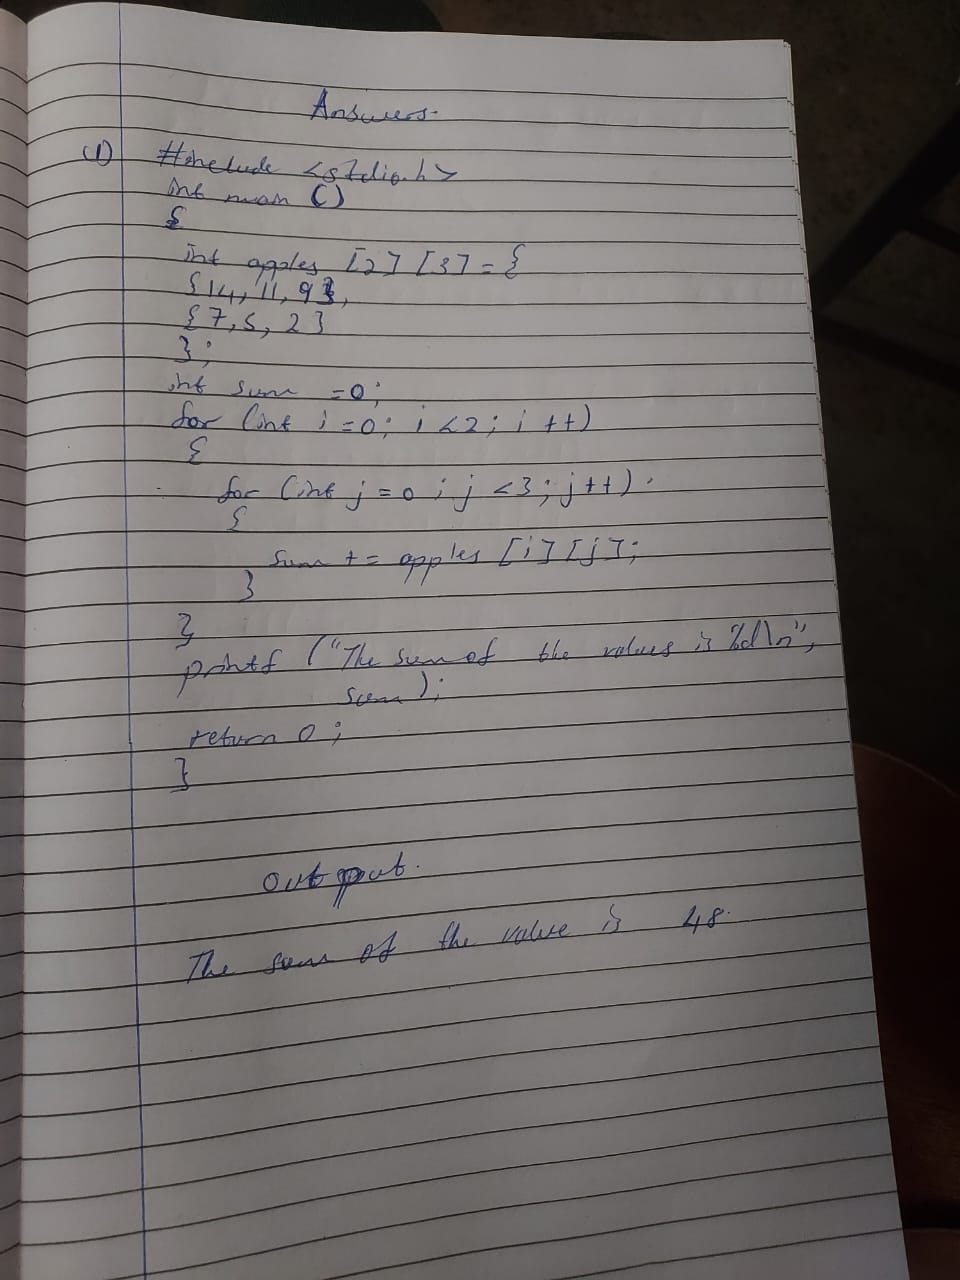 Answers.
(1) #include <stdio.h>
int main ()
{
int apples [2] [3] = {
{14, 11, 9},
{7, 5, 2}
};
int sum = 0;
for (int i = 0; i < 2; i ++)
{
for (int j = 0 ; j < 3 ; j ++)
{
sum += apples [i] [j];
}
}
printf ("The sum of the values is %d\n",
sum );
return 0 ;
}
output.
The sum of the value is 48.